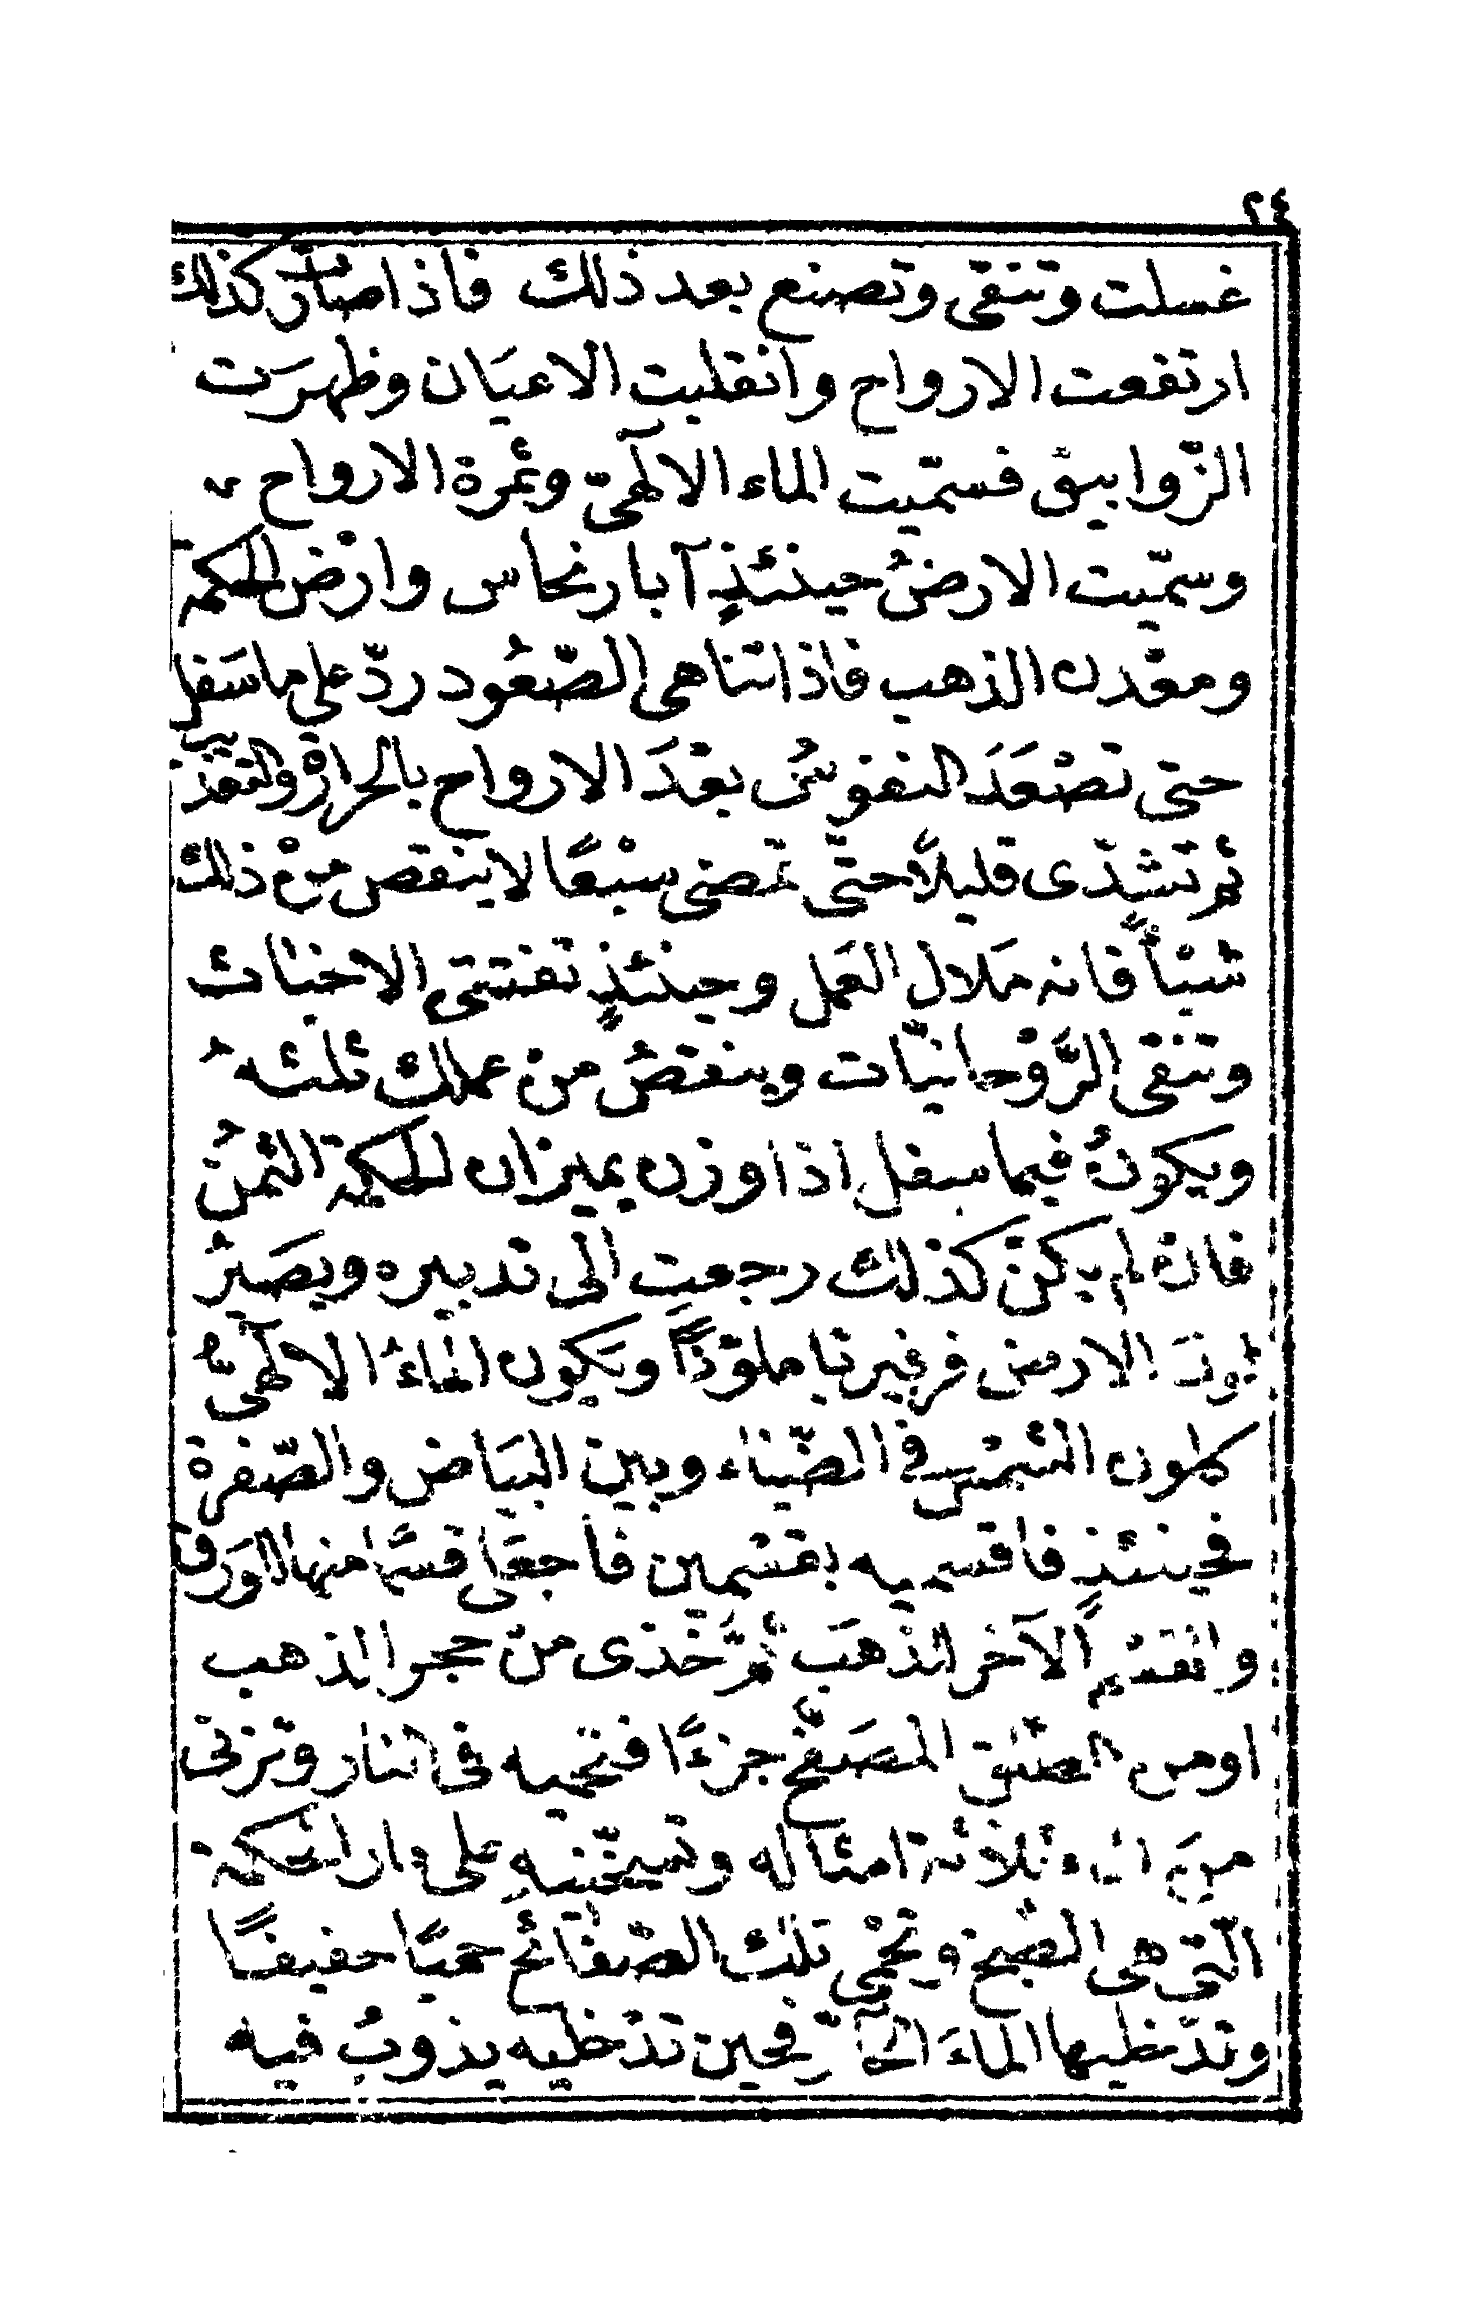 ٢٤
غسلت وتنقى وتصنع بعد ذلك فاذا صارت كذلك
ارتفعت الارواح وانقلبت الاعيان وظهرَت
الزّوابيق فسمّيت الماء الالٓهيّ وثمرة الارواح
وسمّيت الارضُ حينئذٍ آبار نحاس وارْض الحكمة
ومعْدن الذهب فاذا تناهى الصّعُود ردّ على ما سَفل
حتى تصْعَدَ النفوسُ بعْدَ الارواح بالحرارة والتعذيب
ثم تشدّى قليلاً حتّى تمضى سبْعًا لا ينقص منْ ذلك
شيئاً فانه مَلال العَمل وحينئذٍ تفتتى الاخبَاث
وتنقى الرّوْحانيّات وينقصُ منْ عملك ثلثهُ
ويكونُ فيما سفل اذا وزن بميزان الحكمة الثمنُ
فانْ لم يكنْ كذلك رجعتِ الى تدبيره ويصَيرُ
الارض فرفيرنا ملوّذاً وتَكون الماءُ الالٓهىُّ
كلون الشمْس في الضّيَاء وبين البيَاض والصّفرة
فحينئذٍ فاقسميه بقسْمين فاجعَلى قسْمًا منها الوَرق
والقسْم الآخر الذهَبَ ثمّ خذى منْ حجر الذهب
او من المصَفّح جزءًا فتحميه فى النار وتزنى
منَ ثلاثة امثاله وتسخّنيهِ على نار الحكمة
الّتى هى الصّبح وتحْمى تلك الصّفائح حميًا خفيفًا
وتدْخليها الماءَ فحين تدْخليه يذوبُ فيه